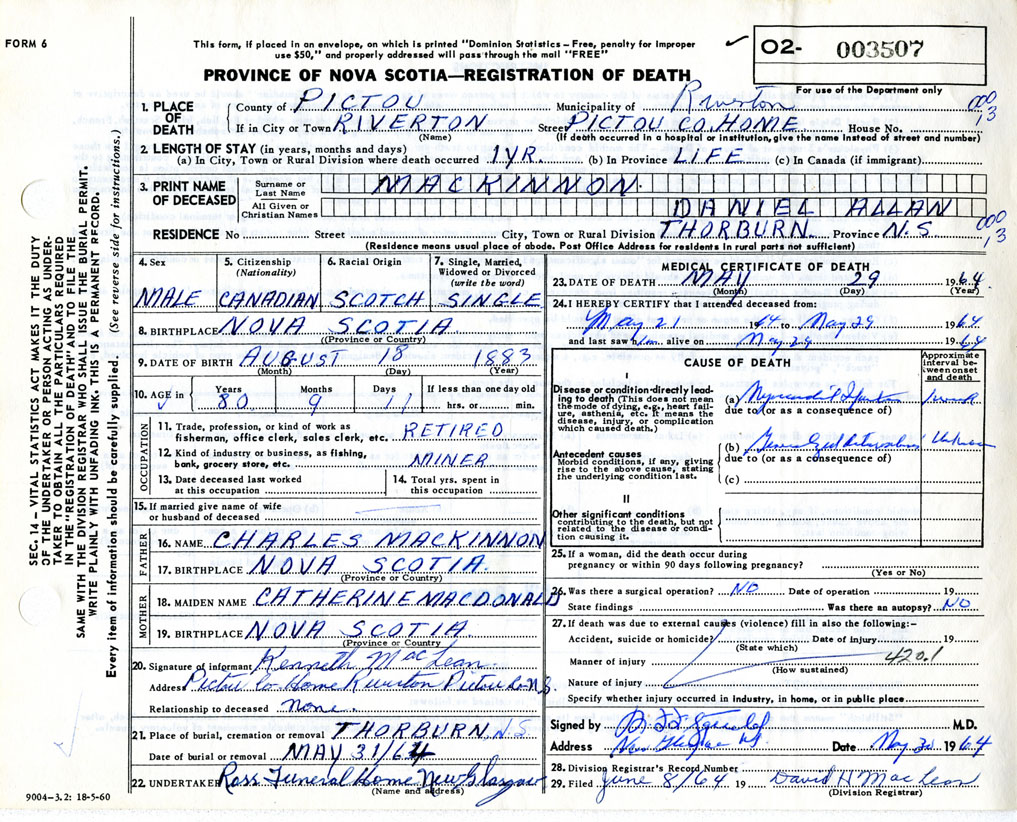 FORM 6
This form, if placed in an envelope, on which is printed "Dominion Statistics – Free, penalty for improper
use $50," and properly addressed will pass through the mail "FREE"
PROVINCE OF NOVA SCOTIA—REGISTRATION OF DEATH
02- 003507
For use of the Department only
1. PLACE OF DEATH County of PICTOU Municipality of Riverton
If in City or Town RIVERTON Street PICTOU CO. HOME House No.
(Name) (If death occurred in a hospital or institution, give the name instead of street and number)
000
13
2. LENGTH OF STAY (in years, months and days)
(a) In City, Town or Rural Division where death occurred 1 YR. (b) In Province LIFE (c) In Canada (if immigrant)
3. PRINT NAME OF DECEASED
Surname or Last Name MACKINNON
All Given or Christian Names DANIEL ALLAN
RESIDENCE No Street City, Town or Rural Division THORBURN Province N.S
(Residence means usual place of abode. Post Office Address for residents in rural parts not sufficient)
000
13
4. Sex MALE
5. Citizenship (Nationality) CANADIAN
6. Racial Origin SCOTCH
7. Single, Married, Widowed or Divorced (write the word) SINGLE
8. BIRTHPLACE NOVA SCOTIA
(Province or Country)
9. DATE OF BIRTH AUGUST 18 1883
(Month) (Day) (Year)
10. AGE in Years 80 Months 9 Days 11 If less than one day old hrs. or min.
OCCUPATION
11. Trade, profession, or kind of work as fisherman, office clerk, sales clerk, etc. RETIRED
12. Kind of industry or business, as fishing, bank, grocery store, etc. MINER
13. Date deceased last worked at this occupation
14. Total yrs. spent in this occupation
15. If married give name of wife or husband of deceased
FATHER
16. NAME CHARLES MACKINNON
17. BIRTHPLACE NOVA SCOTIA
(Province or Country)
MOTHER
18. MAIDEN NAME CATHERINE MACDONALD
19. BIRTHPLACE NOVA SCOTIA
(Province or Country)
20. Signature of informant Kenneth MacLean
Address Pictou Co Home Riverton Pictou Co N.S.
Relationship to deceased none
21. Place of burial, cremation or removal THORBURN, N.S.
Date of burial or removal MAY 31/64
22. UNDERTAKER Ross Funeral Home New Glasgow
(Name and address)
MEDICAL CERTIFICATE OF DEATH
23. DATE OF DEATH MAY 29 1964
(Month) (Day) (Year)
24. I HEREBY CERTIFY that I attended deceased from:
May 21 1964 to May 29 1964
and last saw him alive on May 29 1964
CAUSE OF DEATH
Approximate interval between onset and death
I
Disease or condition directly leading to death (This does not mean the mode of dying, e.g., heart failure, asthenia, etc. It means the disease, injury, or complication which caused death.)
(a)
due to (or as a consequence of)
Antecedent causes
Morbid conditions, if any, giving rise to the above cause, stating the underlying condition last.
(b)
due to (or as a consequence of)
(c)
II
Other significant conditions
contributing to the death, but not related to the disease or condition causing it.
25. If a woman, did the death occur during pregnancy or within 90 days following pregnancy?
(Yes or No)
26. Was there a surgical operation? NO Date of operation 19
State findings Was there an autopsy? NO
27. If death was due to external causes (violence) fill in also the following:–
Accident, suicide or homicide? Date of injury 19
(State which)
Manner of injury 420.1
(How sustained)
Nature of injury
Specify whether injury occurred in industry, in home, or in public place
Signed by M.D.
Address New Glasgow NS Date May 30 1964
28. Division Registrar's Record Number
29. Filed June 8/64 19 David H MacLean
(Division Registrar)
SEC. 14 – VITAL STATISTICS ACT MAKES IT THE DUTY
OF THE UNDERTAKER OR PERSON ACTING AS UNDER-
TAKER TO OBTAIN ALL THE PARTICULARS REQUIRED
IN THE "REGISTRATION OF DEATH" AND TO FILE THE
SAME WITH THE DIVISION REGISTRAR WHO SHALL ISSUE THE BURIAL PERMIT.
WRITE PLAINLY WITH UNFADING INK. THIS IS A PERMANENT RECORD.
Every item of information should be carefully supplied. (See reverse side for instructions.)
9004-3.2: 18-5-60